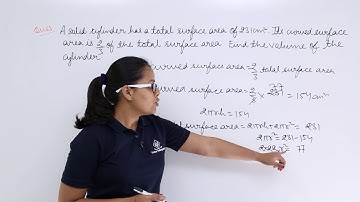 Ques: A solid cylinder has a total surface area of 231cm². Its curved surface
area is 2/3 of the total surface area. Find the volume of the
cylinder
curved surface area = 2/3 total surface area
curved surface area = 2/3 × 231 77 = 154cm²
2πrh = 154
surface area = 2πrh + 2πr² = 231
2πr² = 231 - 154
2×22 r² = 77